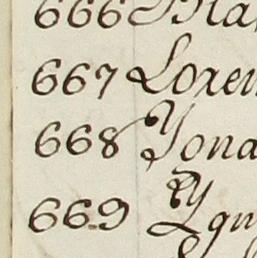 666 Bla
667 Loren
668 Yona
669 Ygn